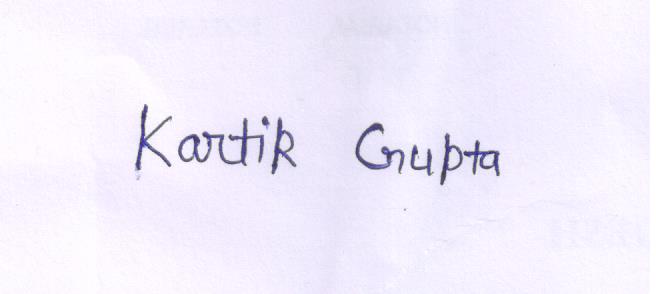 Kartik Gupta